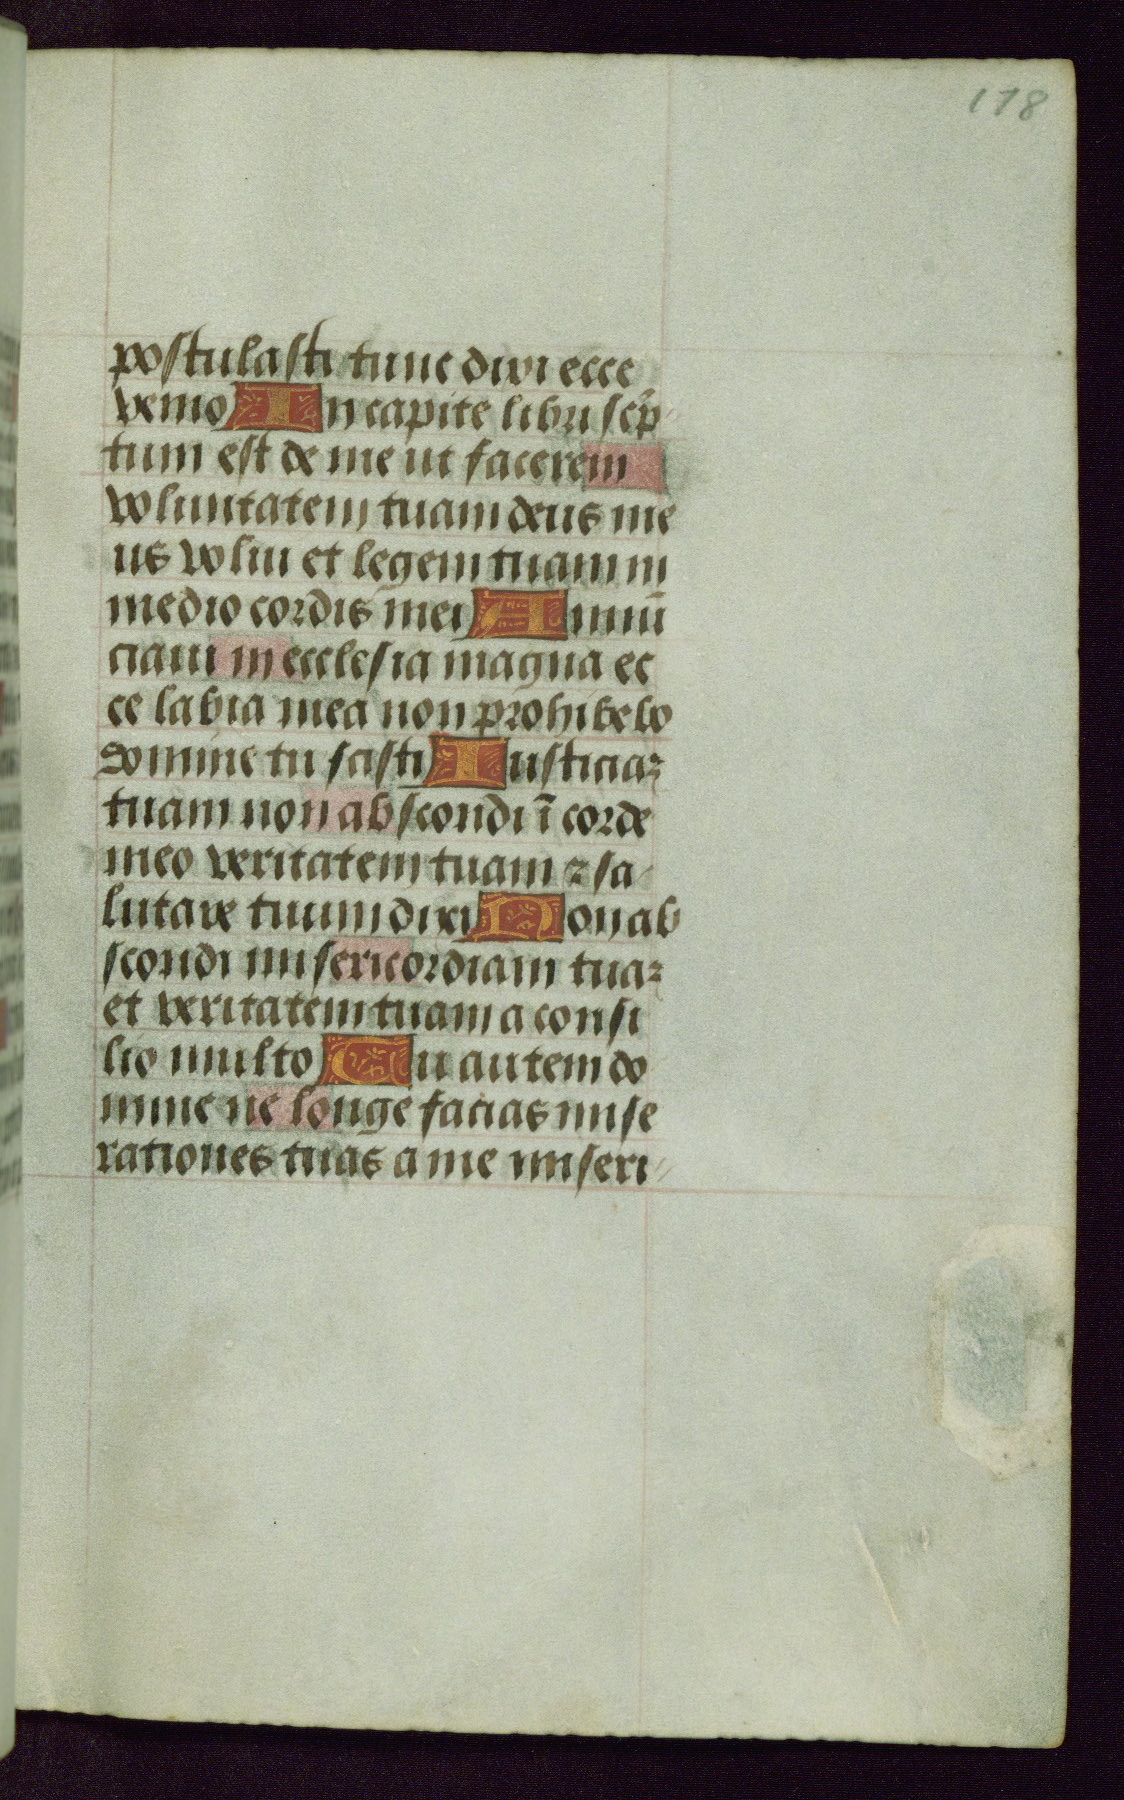 178
postulasti tunc dixi ecce
venio In capite libri scp̃
tum est de me ut facerem
voluntatem tuam deus me
us volui et legem tuam in
medio cordis mei Annũ
ciaui in ecclesia magna ec
ce labia mea non prohibebo
domine tu scisti Iusticiaꝫ
tuam non abscondi ĩ corde
meo veritatem tuam ⁊ sa
lutare tuum dixi Non ab
scondi misericordiam tuaꝫ
et veritatem tuam a consi
lio multo Tu autem do
mine ne longe facias mise
rationes tuas a me miseri